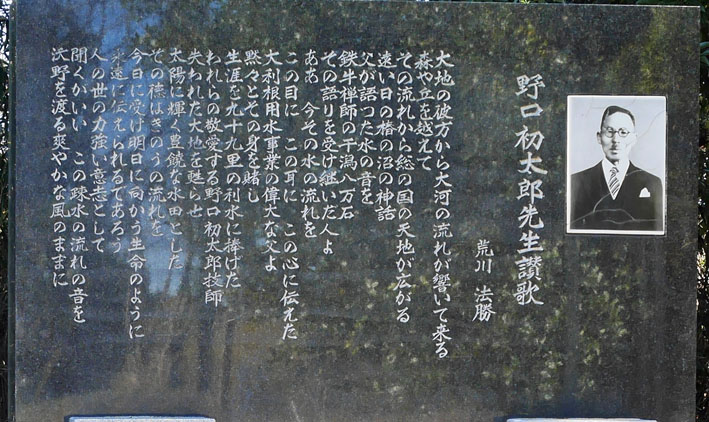 野口初太郎先生讃歌
荒川 法勝
大地の彼方から大河の流れが響いて来る
森や丘を越えて
その流れから総の国の天地が広がる
遠い日の椿の沼の神話
父が語った水の音を
鉄牛禅師の干潟八万石
その語りを受け継いだ人よ
ああ 今その水の流れを
この目に この耳に この心に伝えた
大利根用水事業の偉大な父よ
黙々とその身を賭し
生涯を九十九里の利水に捧げた
われらの敬愛する野口初太郎技師
失われた大地を甦らせ
太陽に輝く豊饒な水田とした
その徳はきのうの流れを
今日に受け明日に向かう生命のように
永遠に伝えられるであろう
人の世の力強い意志として
聞くがいい この疎水の流れの音を
沃野を渡る爽やかな風のままに